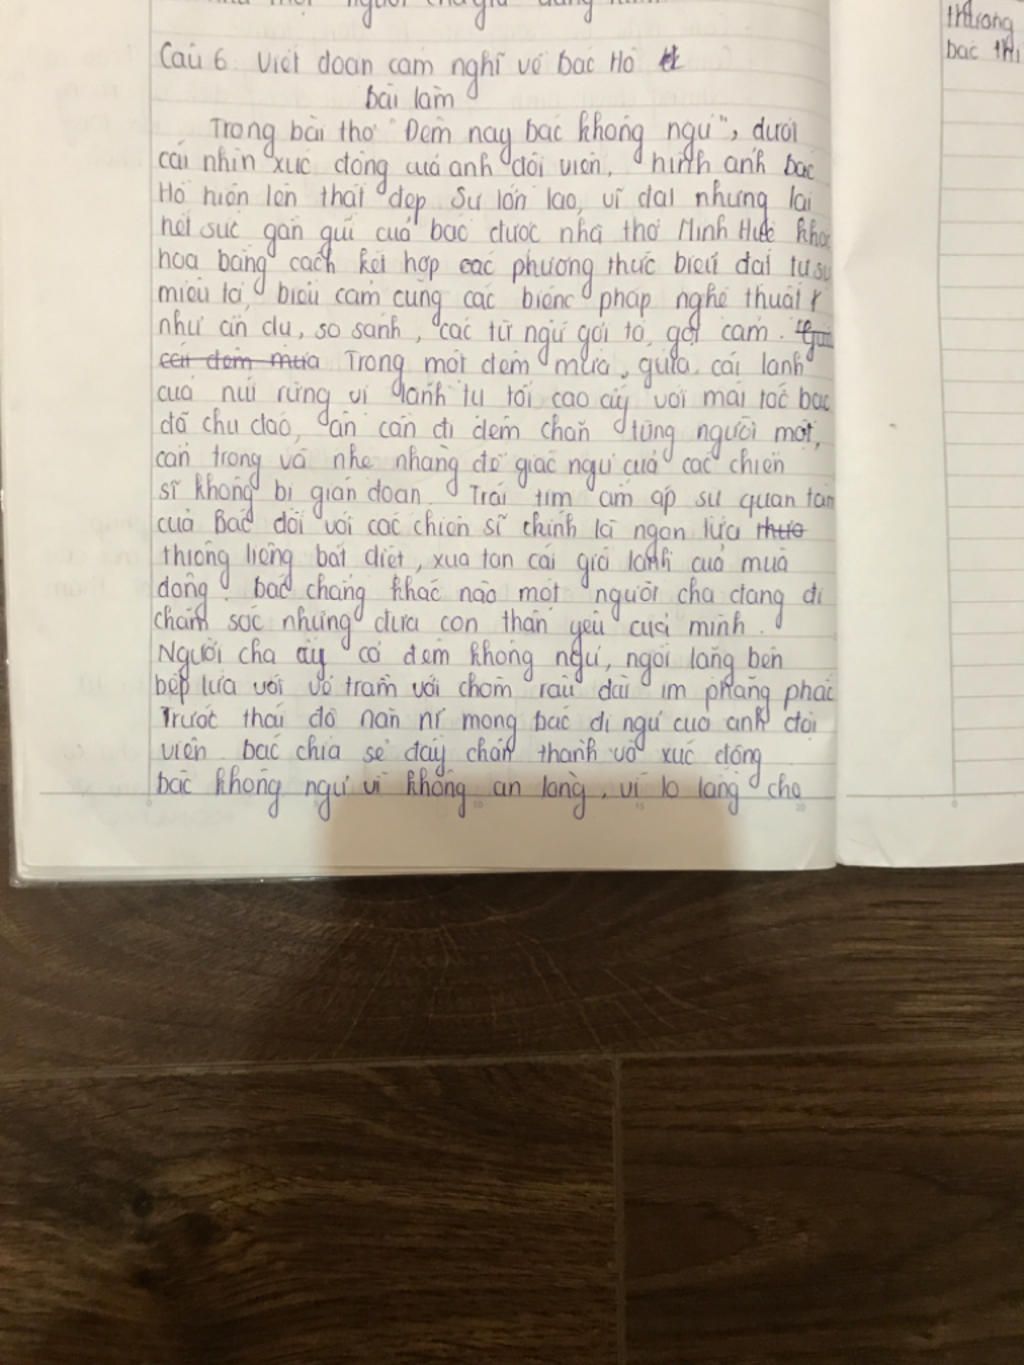 Câu 6 Viết đoạn cảm nghĩ về bác Hồ
bài làm
Trong bài thơ "Đêm nay bác không ngủ", dưới
cái nhìn xúc động của anh đội viên, hình ảnh bác
Hồ hiện lên thật đẹp Sự lớn lao, vĩ đại nhưng lại
hết sức gần gũi của bác được nhà thơ Minh Huệ khắc
hoạ bằng cách kết hợp các phương thức biểu đạt tự sự
miêu tả, biểu cảm cùng các biện pháp nghệ thuật
như ẩn dụ, so sánh, các từ ngữ gợi tả, gợi cảm.
cái đêm mưa Trong một đêm mưa, giữa cái lạnh
của núi rừng vị lãnh tụ tối cao ấy với mái tóc bạc
đã chu đáo, ân cần đi dém chăn từng người một,
cẩn trọng và nhẹ nhàng để giấc ngủ của các chiến
sĩ không bị gián đoạn Trái tim ấm áp sự quan tâm
của Bác đối với các chiến sĩ chính là ngọn lửa
thiêng liêng bất diệt, xua tan cái giá lạnh của mùa
đông. bác chẳng khác nào một người cha đang đi
chăm sóc những đứa con thân yêu của mình.
Người cha ấy có đêm không ngủ, ngồi lặng bên
bếp lửa với vẻ trầm với chòm râu dài im phăng phắc
Trước thái độ nằn nì mong bác đi ngủ của anh đội
viên bác chia sẻ đầy chân thành và xúc động
bác không ngủ vì không an lòng, vì lo lắng cho
thương
bác thì